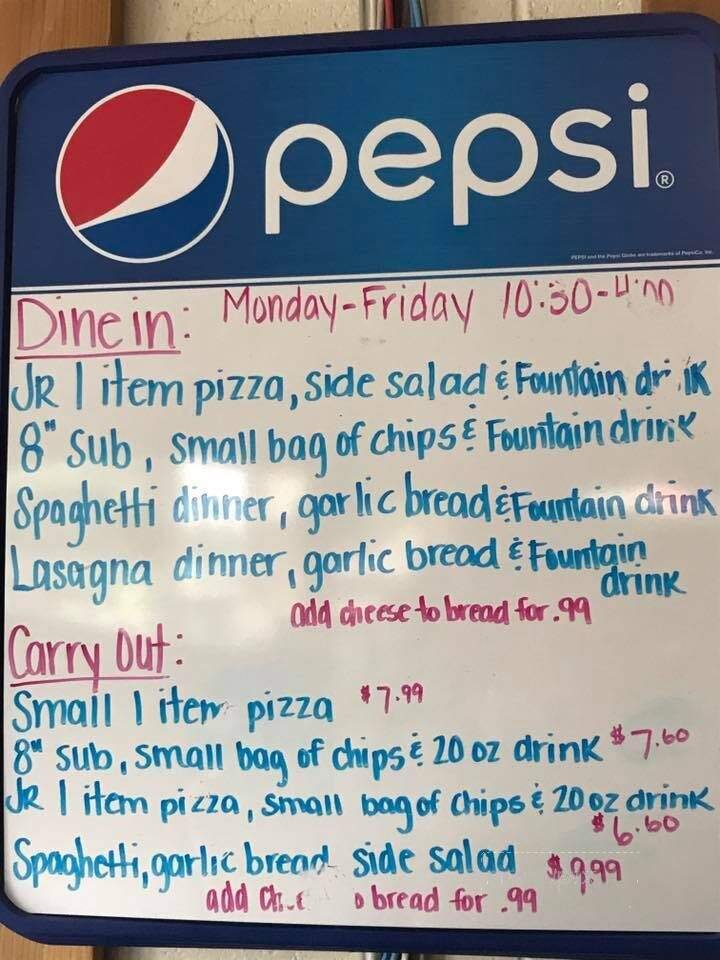 pepsi®
PEPSI and the Pepsi Globe are trademarks of PepsiCo, Inc.
Dine in: Monday-Friday 10:30-4:00
JR 1 item pizza, side salad & Fountain drink
8" Sub, small bag of chips & Fountain drink
Spaghetti dinner, garlic bread & Fountain drink
Lasagna dinner, garlic bread & Fountain
drink
add cheese to bread for .99
Carry Out:
Small 1 item pizza $7.99
8" sub, small bag of chips & 20 oz drink $7.60
JR 1 item pizza, small bag of chips & 20 oz drink
$6.60
Spaghetti, garlic bread side salad $9.99
add bread for .99